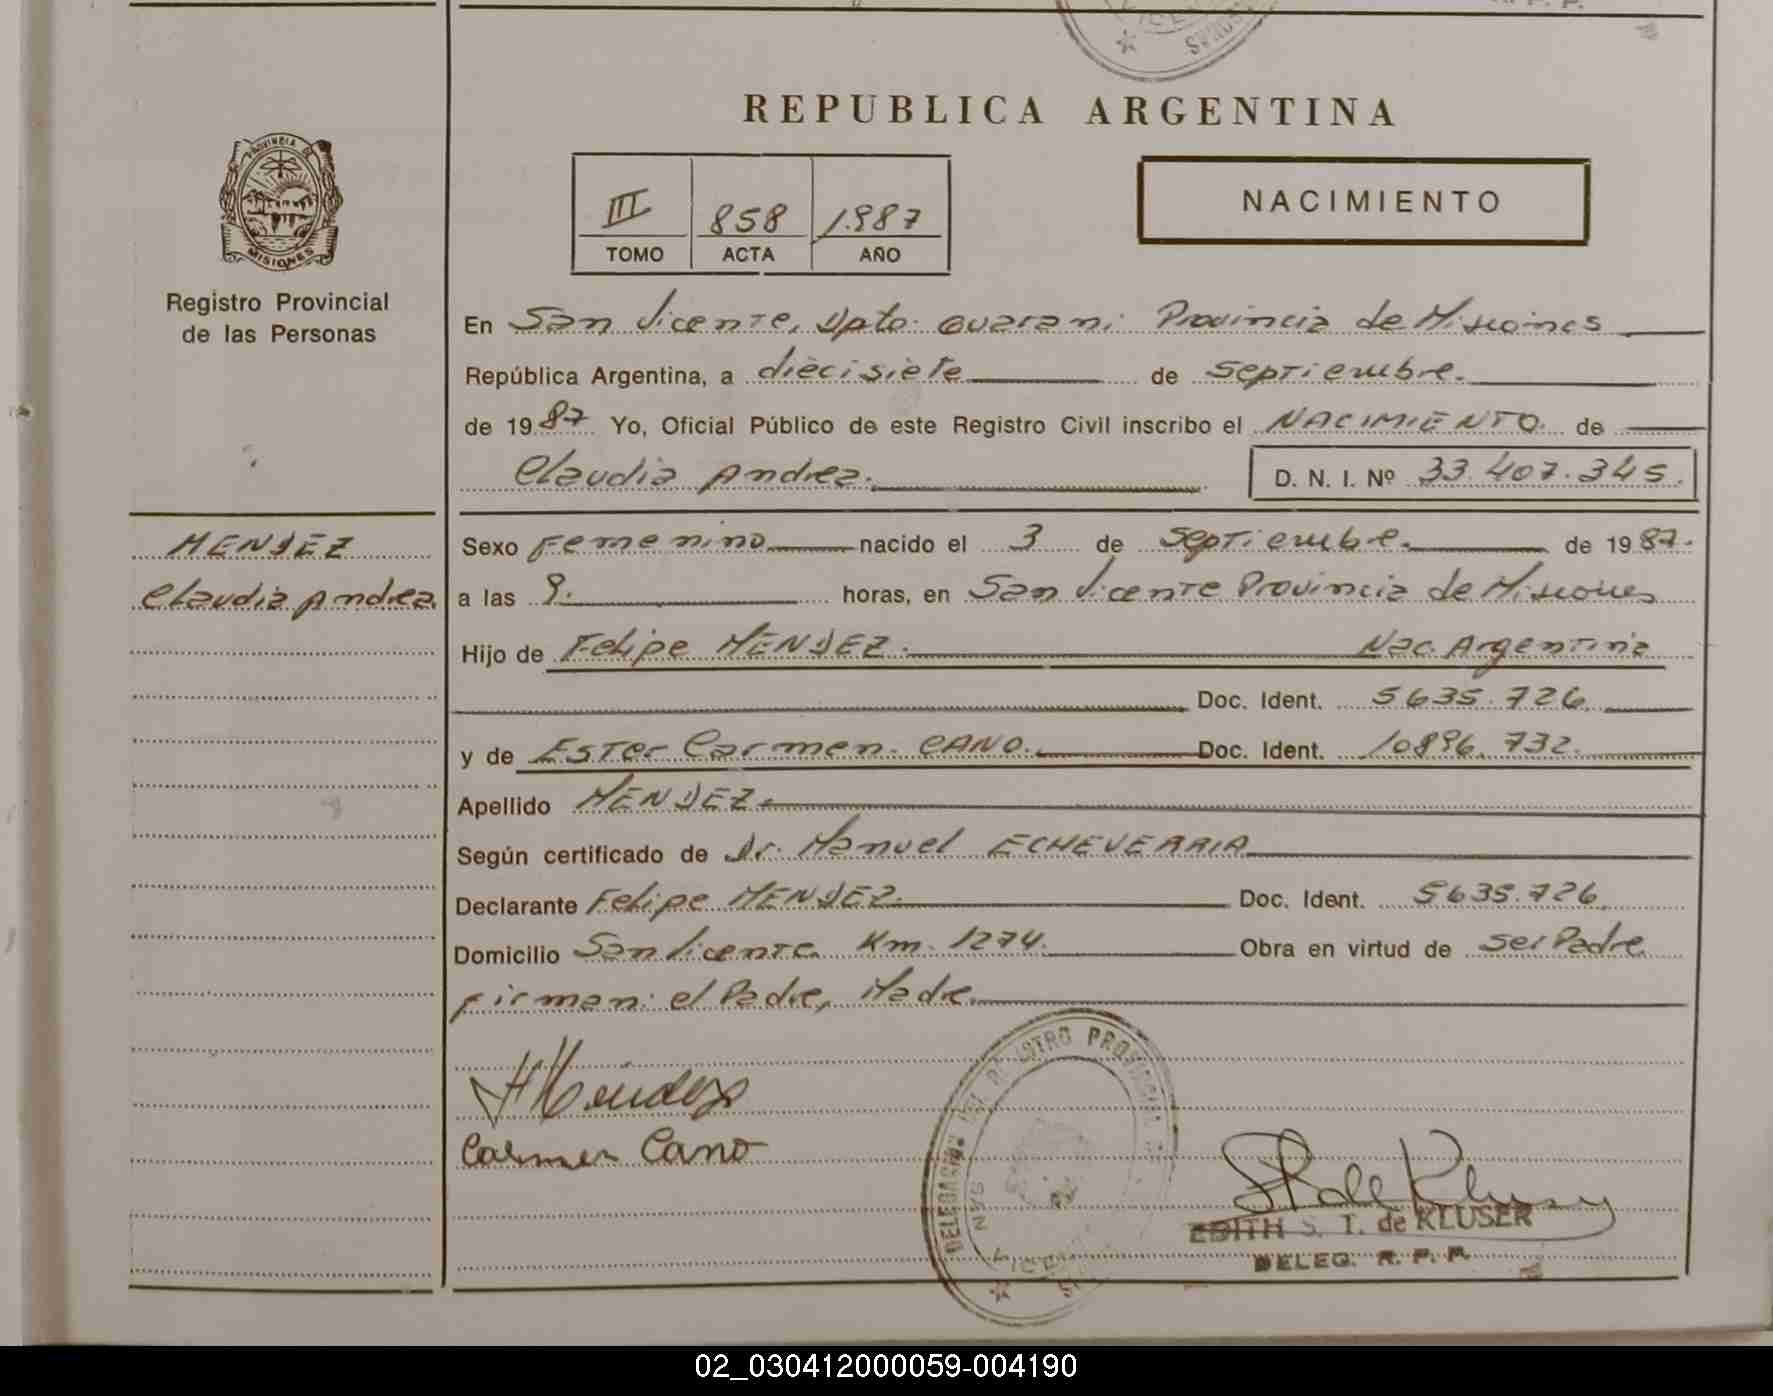 REPUBLICA ARGENTINA
PROVINCIA DE
MISIONES
Registro Provincial
de las Personas
III 858 1.987
TOMO ACTA AÑO
NACIMIENTO
En San Vicente, Dpto. Guarani Provincia de Misiones
República Argentina, a diecisiete de septiembre.
de 1987 Yo, Oficial Público de este Registro Civil inscribo el NACIMIENTO. de
Claudia Andrea. D. N. I. Nº 33.407.345.
MENDEZ
Claudia Andrea
Sexo Femenino nacido el 3 de septiembre. de 1987.
a las 9. horas, en San Vicente Provincia de Misiones
Hijo de Felipe MENDEZ. Nac. Argentina
Doc. Ident. 5635.726.
y de Ester Carmen. CANO. Doc. Ident. 10896.732.
Apellido MENDEZ.
Según certificado de Dr. Manuel ECHEVERRIA
Declarante Felipe MENDEZ. Doc. Ident. 5635.726.
Domicilio San Vicente Km. 1274. Obra en virtud de ser Padre
firman: el Padre, Madre.
Carmen Cano
EDITH S. T. de KLUSER
DELEG. R. P. P.
02_030412000059-004190